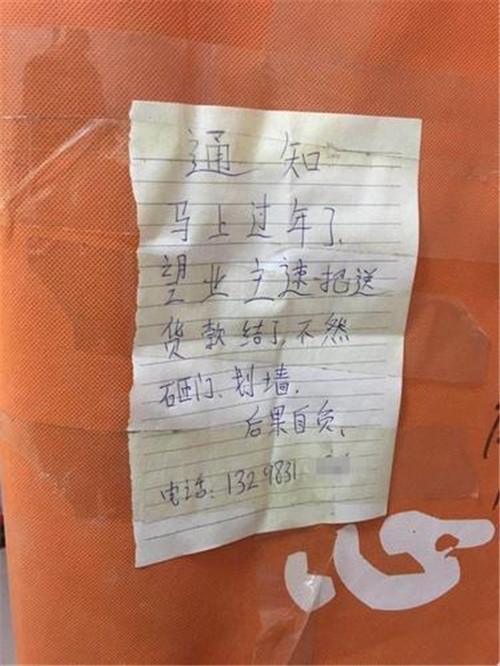 通知
马上过年了、
望业主速把送
货款结了,不然
砸门、划墙,
后果自负、
电话:1329831
心